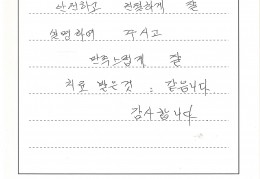 안전하고 친절하게 잘
설명하여 주시고
만족스럽게 잘
치료 받은것 같습니다
감사합니다